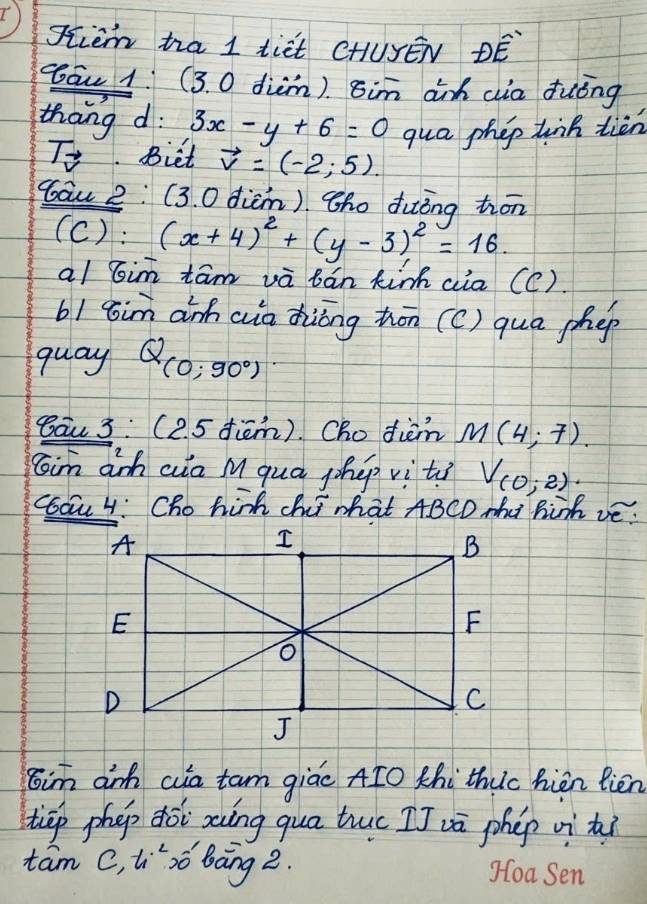 Kiểm tra 1 tiết CHUYÊN ĐỀ
Câu 1: (3.0 điểm). Tìm ảnh của đường
thẳng d: 3x - y + 6 = 0 qua phép tịnh tiến
T_v⃗. Biết v⃗ = (-2; 5).
Câu 2: (3.0 điểm). Cho đường tròn
(C): (x + 4)² + (y - 3)² = 16.
a/ Tìm tâm và bán kính của (C).
b/ Tìm ảnh của đường tròn (C) qua phép
quay Q(O; 90°).
Câu 3: (2.5 điểm). Cho điểm M(4; 7).
Tìm ảnh của M qua phép vị tự V(O; 2).
Câu 4: Cho hình chữ nhật ABCD như hình vẽ:
A I B
E F
O
D C
J
Tìm ảnh của tam giác AIO khi thực hiện liên
tiếp phép đối xứng qua trục IJ và phép vị tự
tâm C, tỉ số bằng 2.
Hoa Sen